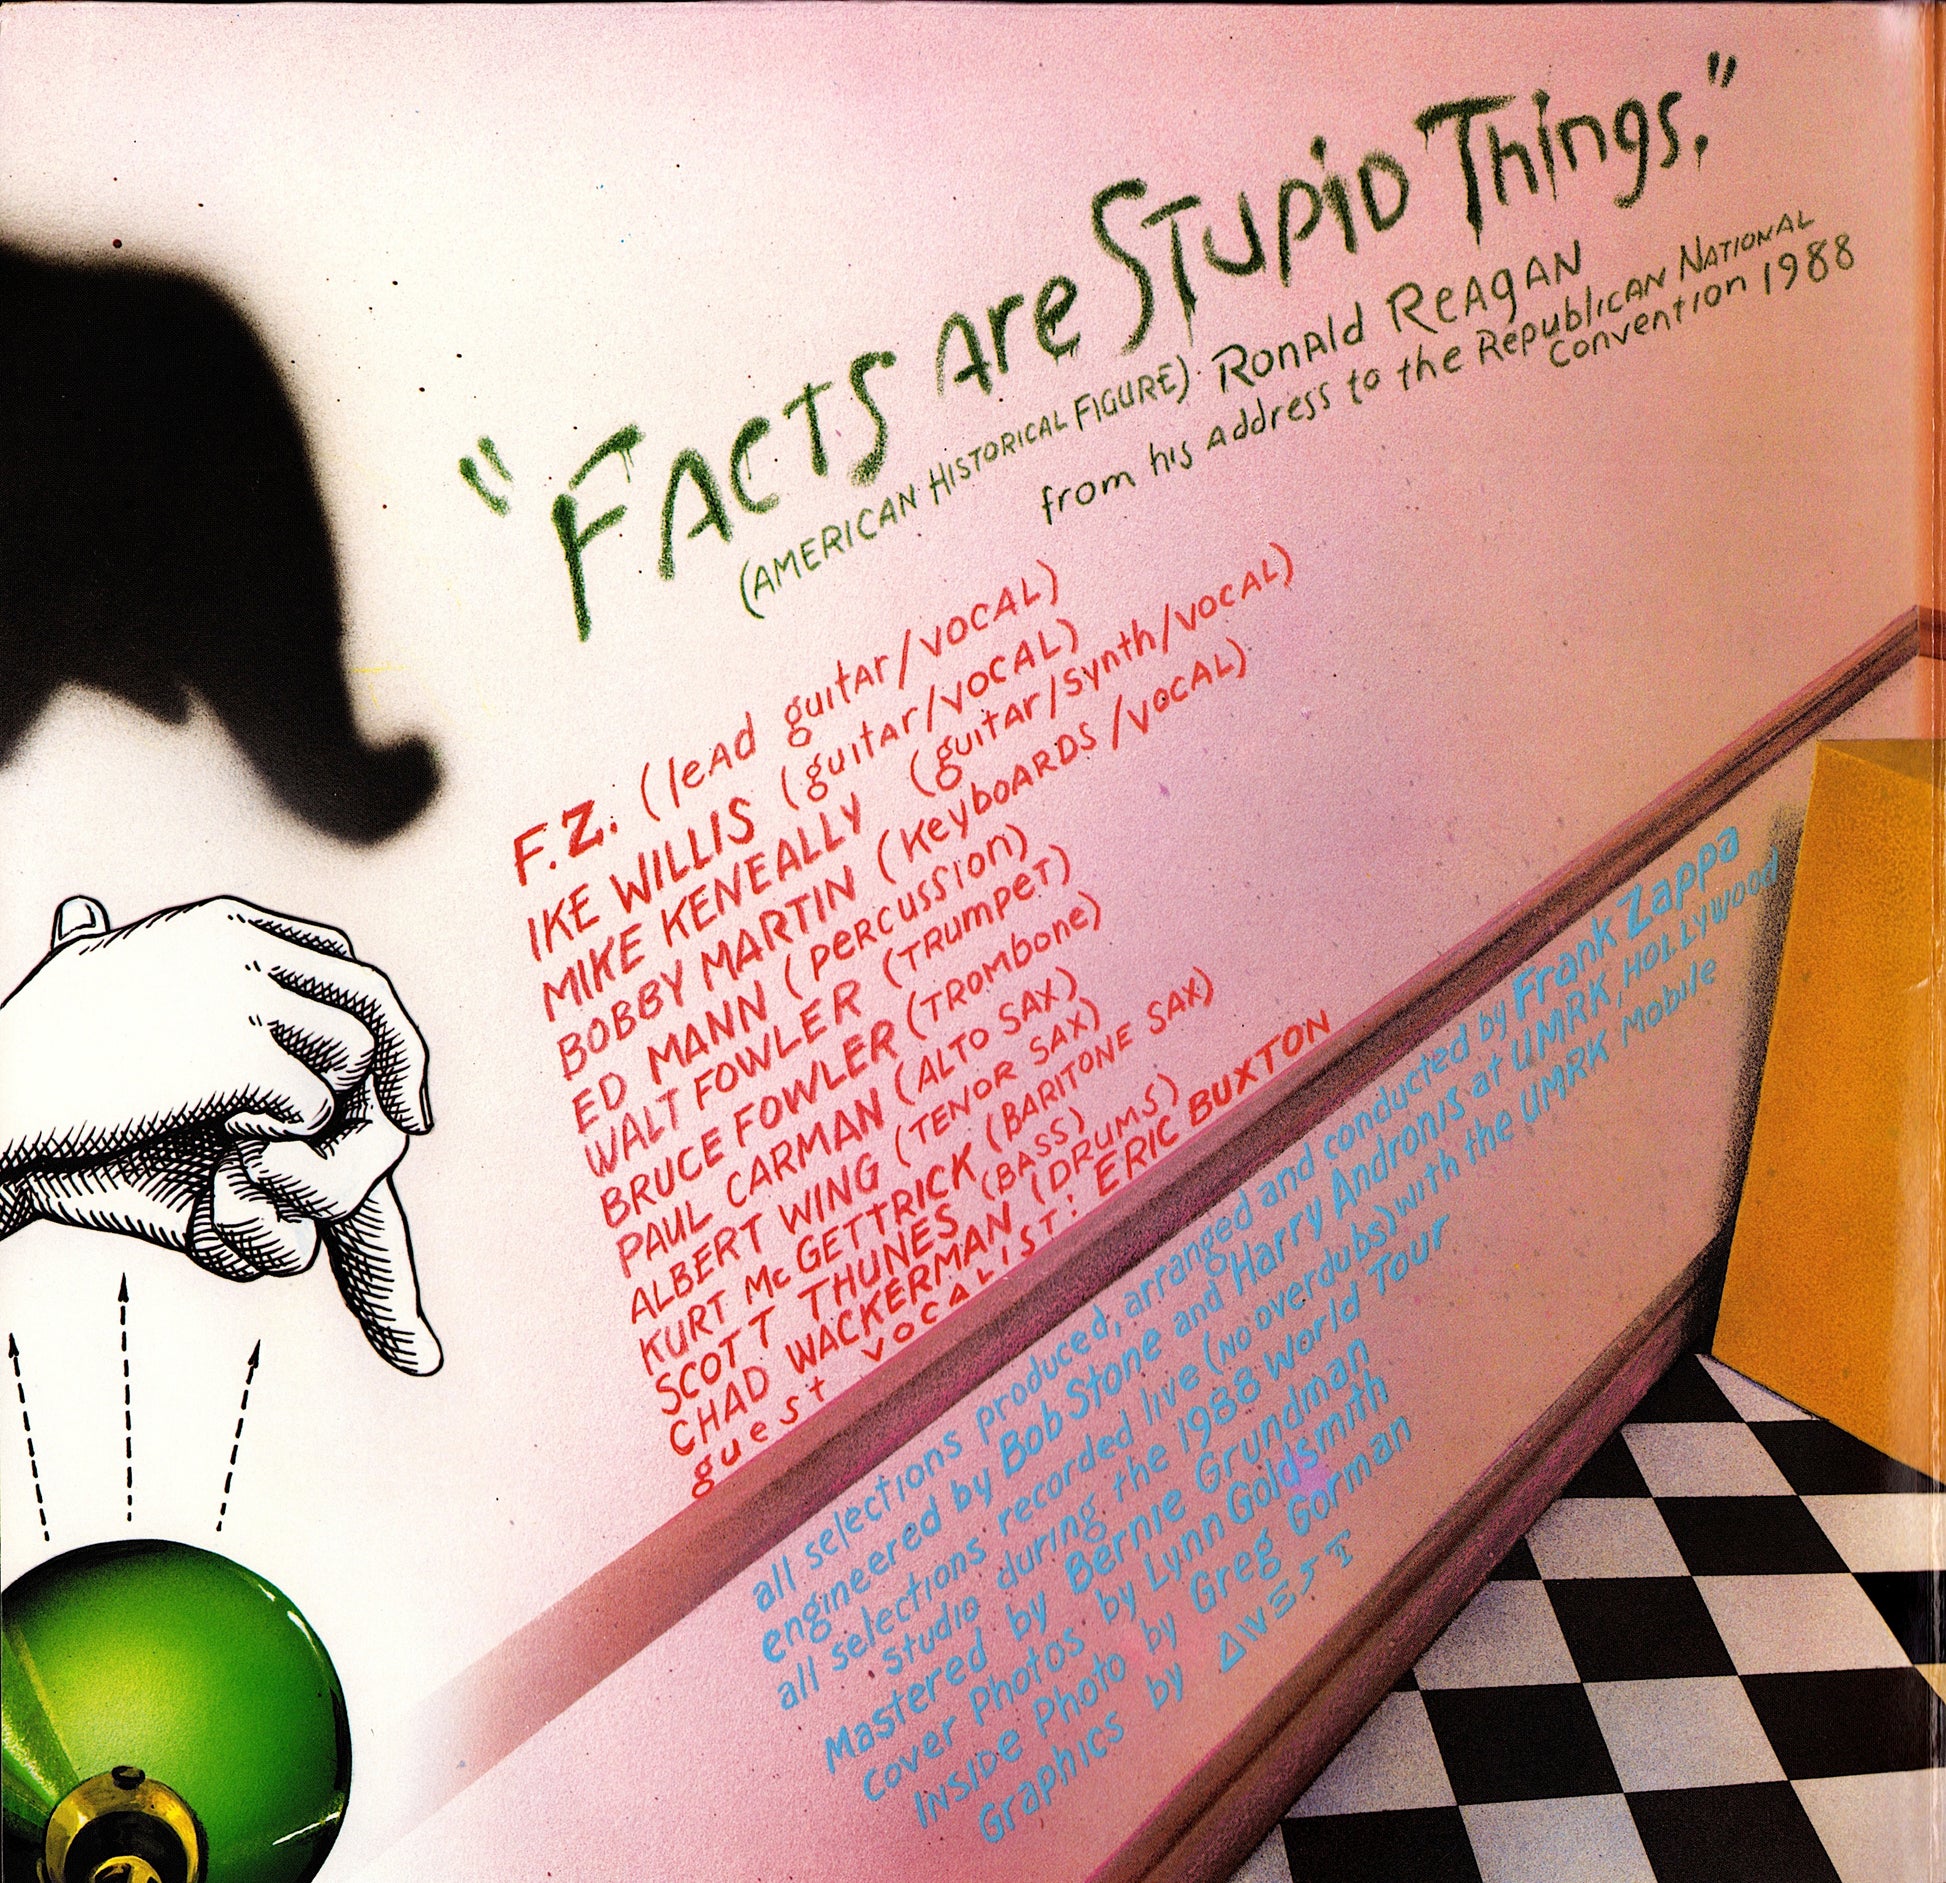 "Facts Are Stupid Things."
(AMERICAN HISTORICAL FIGURE) Ronald Reagan
from his address to the Republican National
Convention 1988
F.Z. (lead guitar/vocal)
IKE WILLIS (guitar/vocal)
MIKE KENEALLY (guitar/synth/vocal)
BOBBY MARTIN (keyboards/vocal)
ED MANN (percussion)
WALT FOWLER (trumpet)
BRUCE FOWLER (trombone)
PAUL CARMAN (ALTO SAX)
ALBERT WING (TENOR SAX)
KURT McGETTRICK (BARITONE SAX)
SCOTT THUNES (BASS)
CHAD WACKERMAN (DRUMS)
guest vocalist: ERIC BUXTON
all selections produced, arranged and conducted by Frank Zappa
engineered by Bob Stone and Harry Andronis at UMRK, HOLLYWOOD
all selections recorded live (no overdubs) with the UMRK mobile
studio during the 1988 World Tour
Mastered by Bernie Grundman
Cover Photos by Lynn Goldsmith
Inside Photo by Greg Gorman
Graphics by